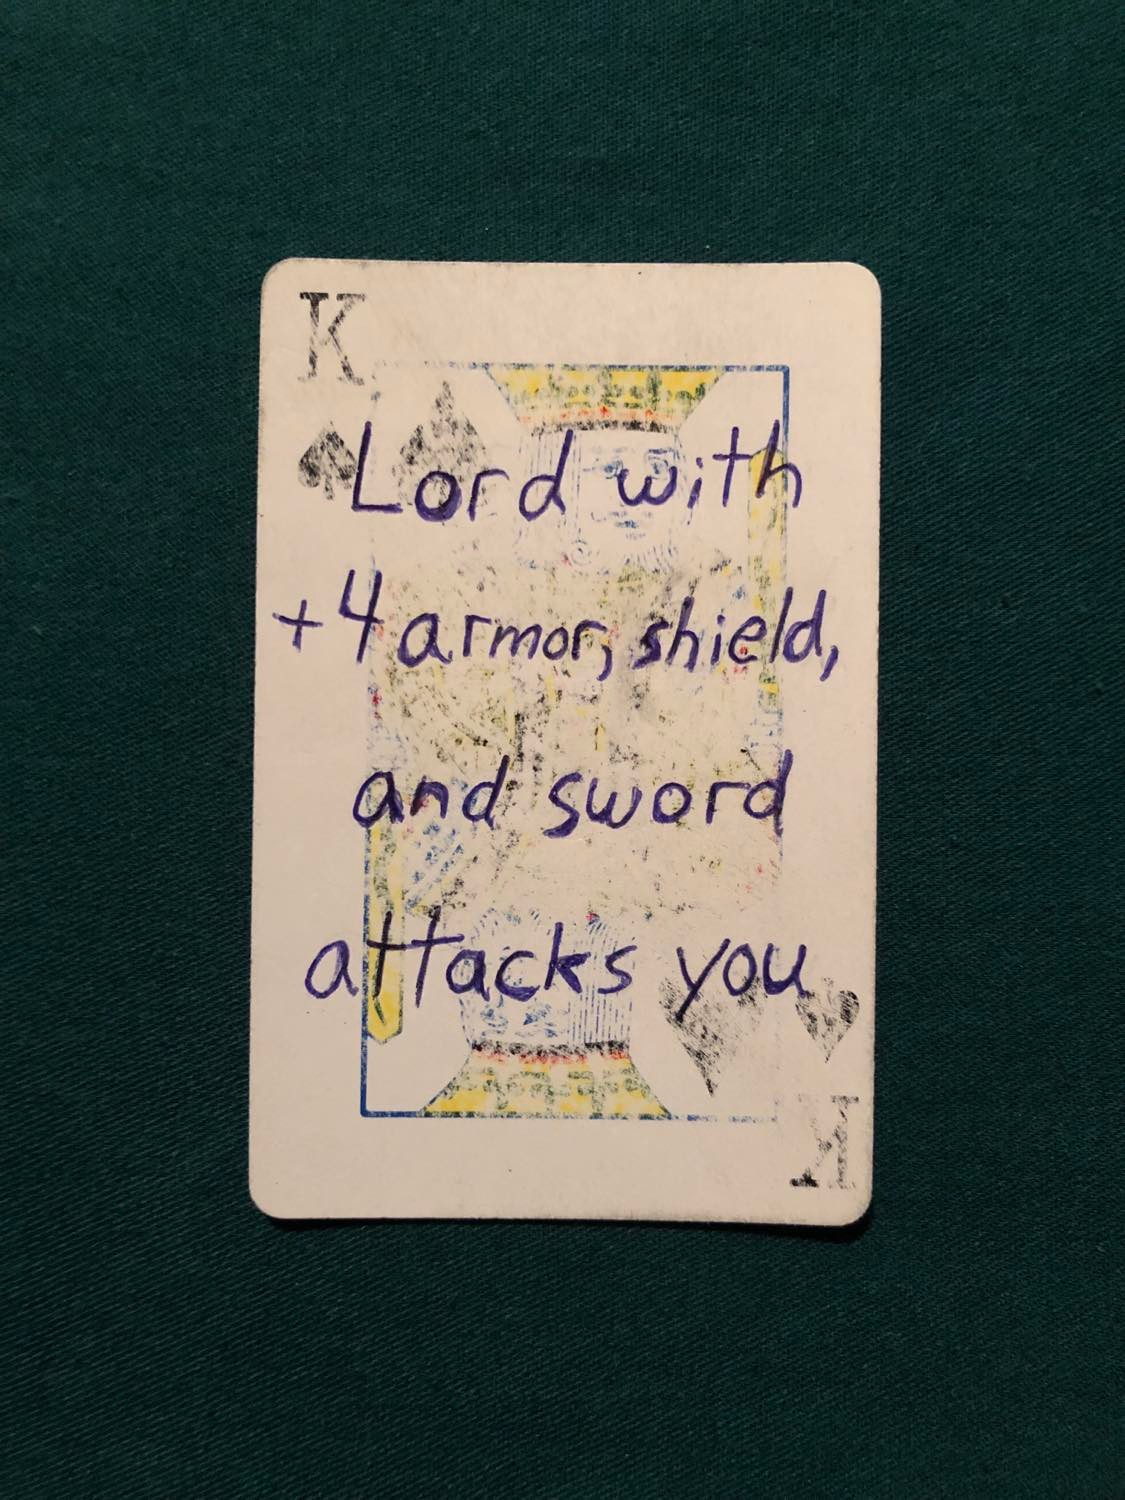 K
Lord with
+4 armor, shield,
and sword
attacks you
K